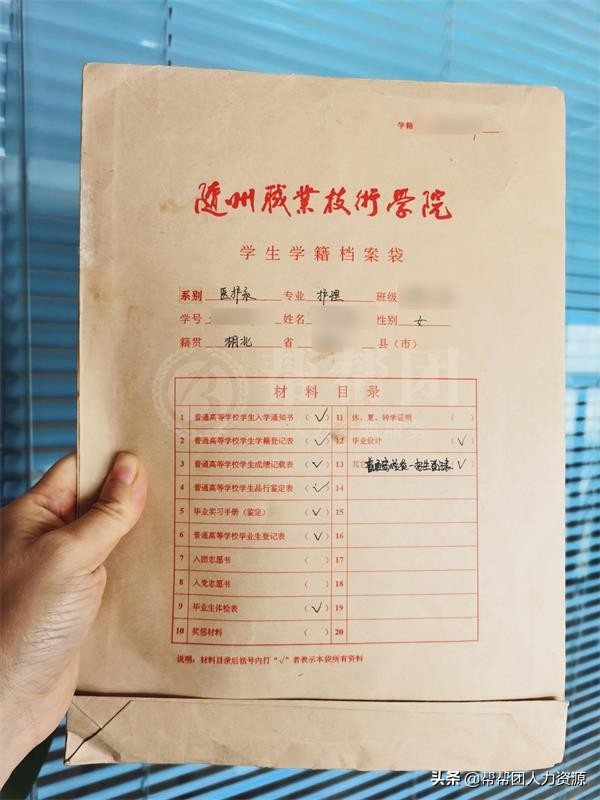 学籍
随州職業技術學院
学生学籍档案袋
系别 医护系 专业 护理 班级
学号 姓名 性别 女
籍贯 湖北 省 县(市)
材料目录
1 普通高等学校学生入学通知书 (√) 11 休、复、转学证明 ( )
2 普通高等学校学生学籍登记表 (√) 12 毕业设计 (√)
3 普通高等学校学生成绩记载表 (√) 13 其它 √)
4 普通高等学校学生品行鉴定表 (√) 14
5 毕业实习手册(鉴定) (√) 15
6 普通高等学校毕业生登记表 (√) 16
7 入团志愿书 ( ) 17
8 入党志愿书 ( ) 18
9 毕业生体检表 (√) 19
10 奖惩材料 ( ) 20
说明:材料目录后括号内打“√”者表示本袋所有资料
帮帮团
头条 @帮帮团人力资源